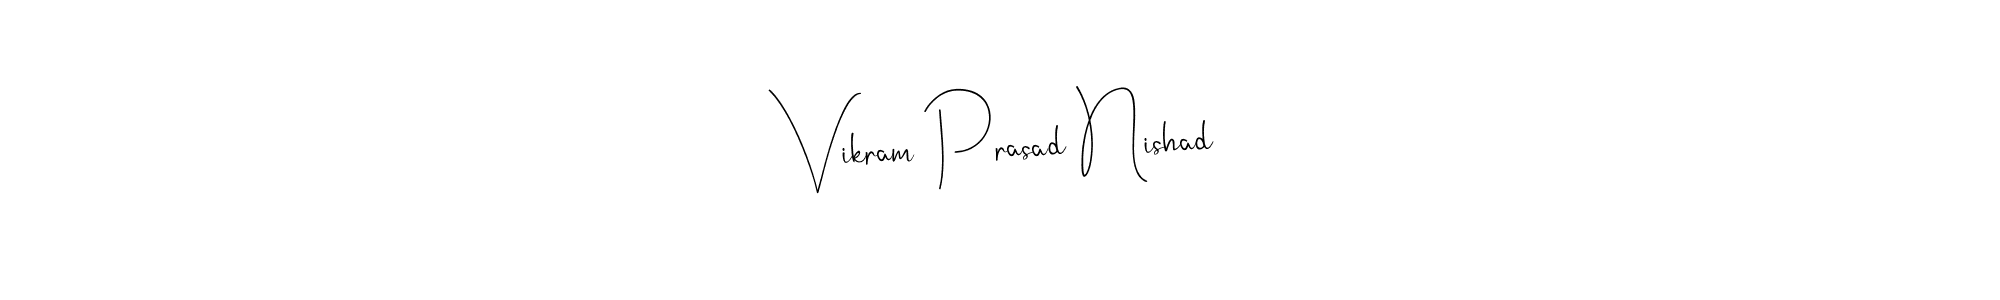 Vikram Prasad Nishad